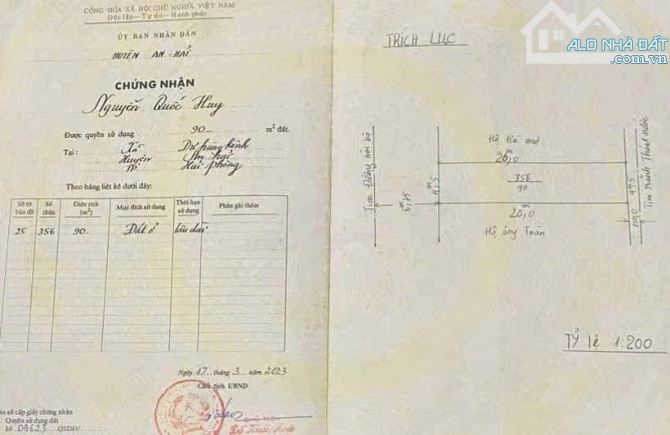 CỘNG HÒA XÃ HỘI CHỦ NGHĨA VIỆT NAM
Độc lập - Tự do - Hạnh phúc
ỦY BAN NHÂN DÂN
HUYỆN AN HẢI
CHỨNG NHẬN
Nguyễn Quốc Huy
Được quyền sử dụng 90 m² đất.
Tại : Xã Dư hàng kênh
Huyện An hải
TP Hải phòng
Theo bảng liệt kê dưới đây:
Số tờ bản đồ
Số thửa
Diện tích (m²)
Mục đích sử dụng
Thời hạn sử dụng
Phần ghi thêm
25 356 90 Đất ở lâu dài
Ngày 17 tháng 3 năm 2003
Chủ tịch UBND
vào sổ cấp giấy chứng nhận
Quyền sử dụng đất
Số 04623 QSDĐ/
ALO NHÀ ĐẤT
.com.vn
TRÍCH LỤC
Tim đường nội bộ
6,75
4,5
20,0
356
90
20,0
Hộ ông Toàn
4,5
Tim mảnh Thoát nước
TỶ lệ 1:200